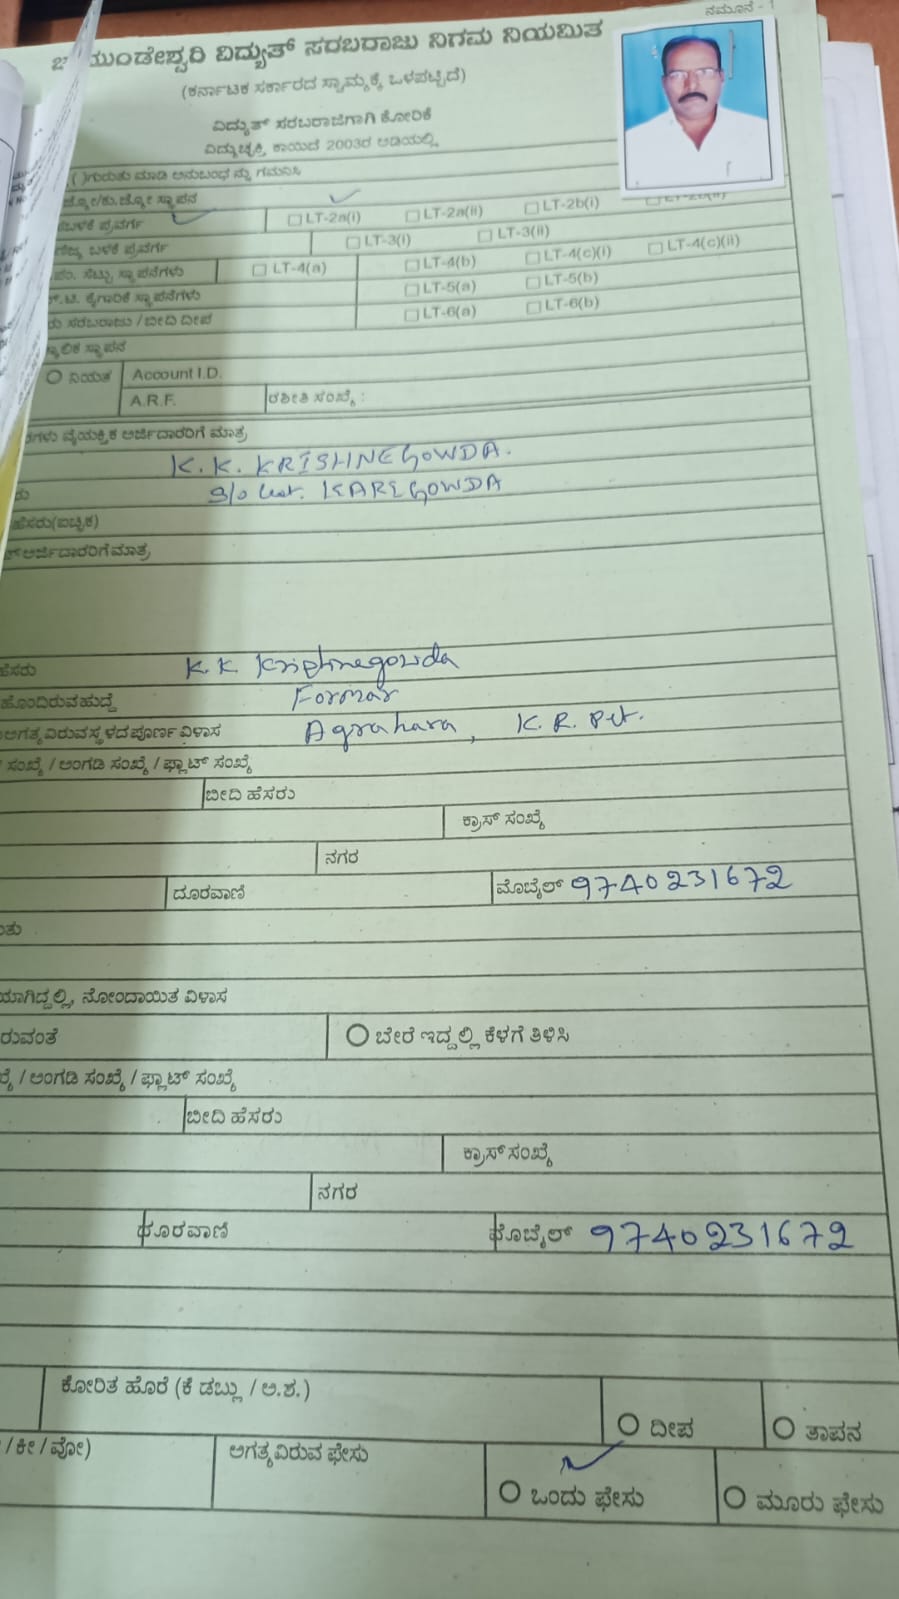 ನಮೂನೆ - 1
ಯುಂಡೇಶ್ವರಿ ವಿದ್ಯುತ್ ಸರಬರಾಜು ನಿಗಮ ನಿಯಮಿತ
(ಕರ್ನಾಟಕ ಸರ್ಕಾರದ ಸ್ವಾಮ್ಯಕ್ಕೆ ಒಳಪಟ್ಟಿದೆ)
ವಿದ್ಯುತ್ ಸರಬರಾಜಿಗಾಗಿ ಕೋರಿಕೆ
ವಿದ್ಯುಚ್ಛಕ್ತಿ ಕಾಯಿದೆ 2003ರ ಅಡಿಯಲ್ಲಿ
( )ಗುರುತು ಮಾಡಿ ಅನುಬಂಧ ನ್ನು ಗಮನಿಸಿ
ಸ್ಥಾಪನ
ಬಳಕೆ ಪ್ರವರ್ಗ LT-2a(i) LT-2a(ii) LT-2b(i)
ಬಳಕೆ ಪ್ರವರ್ಗ LT-3(i) LT-3(ii)
ಸೆಟ್ಟು ಸ್ಥಾಪನೆಗಳು LT-4(a) LT-4(b) LT-4(c)(i) LT-4(c)(ii)
ಕೈಗಾರಿಕೆ ಸ್ಥಾಪನೆಗಳು LT-5(a) LT-5(b)
ಸರಬರಾಜು / ಬೀದಿ ದೀಪ LT-6(a) LT-6(b)
ಸ್ಥಾಪನ
ನಿಯತ Account I.D.
A.R.F. ರಶೀತಿ ಸಂಖ್ಯೆ :
ವೈಯಕ್ತಿಕ ಅರ್ಜಿದಾರರಿಗೆ ಮಾತ್ರ
K. K. KRISHNEGOWDA.
S/o Lat. KAREGOWDA
ಹೆಸರು(ಐಚ್ಛಿಕ)
ಅರ್ಜಿದಾರರಿಗೆ ಮಾತ್ರ
ಹೆಸರು K. K Krishnegowda
ಹೊಂದಿರುವ ಹುದ್ದೆ Formar
ಅಗತ್ಯವಿರುವ ಸ್ಥಳದ ಪೂರ್ಣ ವಿಳಾಸ Agrahara, K. R. Pet.
ಸಂಖ್ಯೆ / ಅಂಗಡಿ ಸಂಖ್ಯೆ / ಫ್ಲಾಟ್ ಸಂಖ್ಯೆ
ಬೀದಿ ಹೆಸರು
ಕ್ರಾಸ್ ಸಂಖ್ಯೆ
ನಗರ
ದೂರವಾಣಿ ಮೊಬೈಲ್ 9740231672
ನೋಂದಾಯಿತ ವಿಳಾಸ
ಬೇರೆ ಇದ್ದಲ್ಲಿ ಕೆಳಗೆ ತಿಳಿಸಿ
/ ಅಂಗಡಿ ಸಂಖ್ಯೆ / ಫ್ಲಾಟ್ ಸಂಖ್ಯೆ
ಬೀದಿ ಹೆಸರು
ಕ್ರಾಸ್ ಸಂಖ್ಯೆ
ನಗರ
ದೂರವಾಣಿ ಮೊಬೈಲ್ 9740231672
ಕೋರಿತ ಹೊರೆ (ಕೆ ಡಬ್ಲು / ಅ.ಶ.) ದೀಪ ತಾಪನ
/ ಕೀ / ವೋ) ಅಗತ್ಯವಿರುವ ಫೇಸು ಒಂದು ಫೇಸು ಮೂರು ಫೇಸು